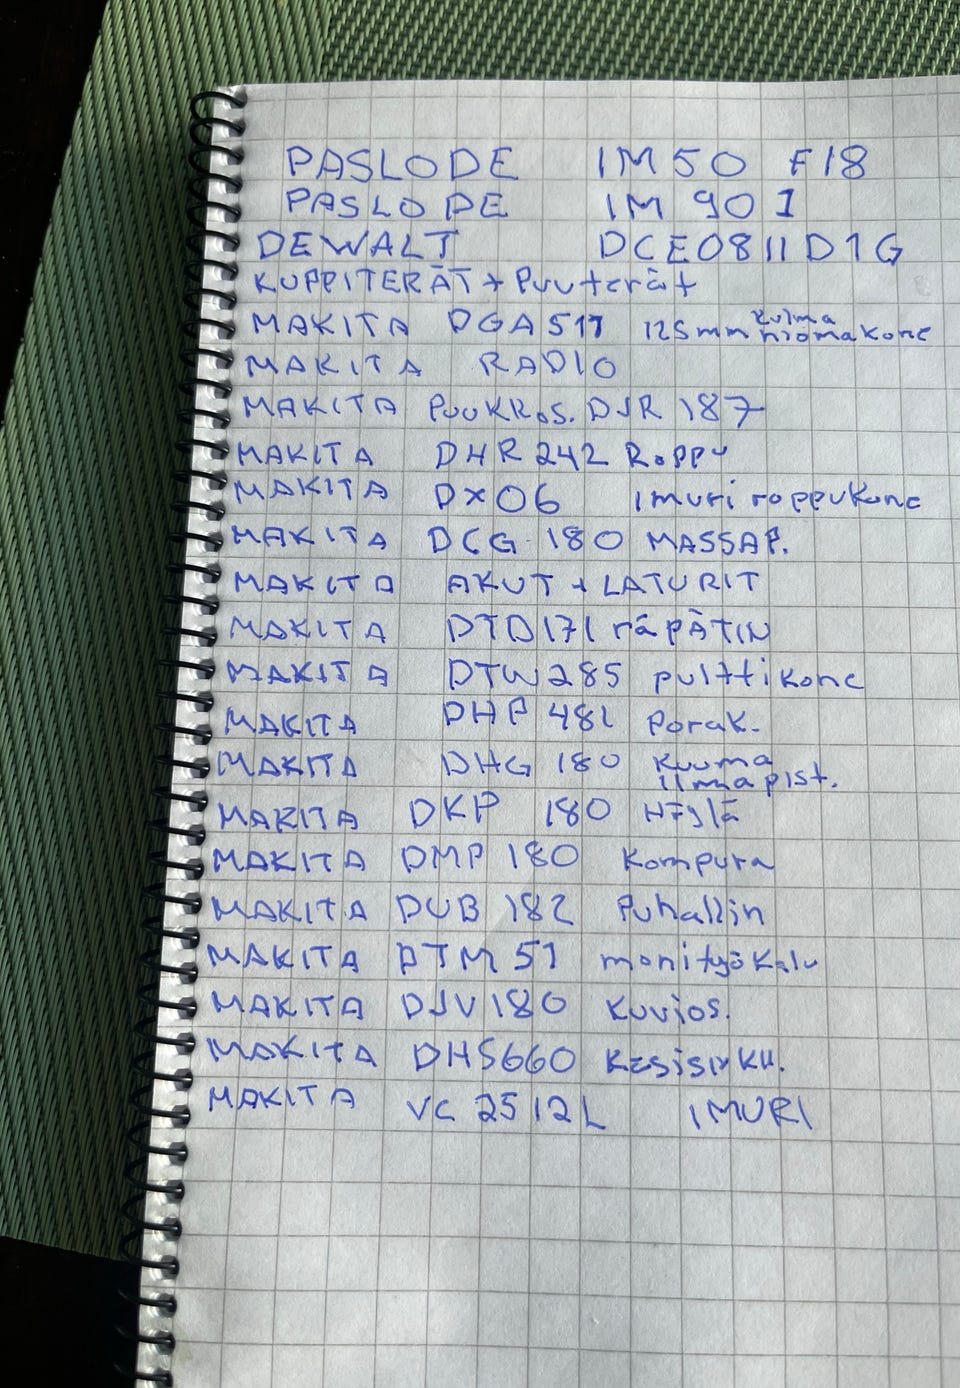 PASLODE IM50 F18
PASLODE IM 90 I
DEWALT DCE0811D1G
KUPPITERÄT + Puuterät
MAKITA DGA511 125mm kulma hiomakone
MAKITA RADIO
MAKITA PUUKKOS. DJR 187
MAKITA DHR 242 Roppu
MAKITA DX06 Imuri roppukone
MAKITA DCG 180 MASSAP.
MAKITA AKUT + LATURIT
MAKITA DTD171 räpÄTIN
MAKITA DTW285 pulttikone
MAKITA DHP 482 Porak.
MAKITA DHG 180 Kuuma ilmapist.
MAKITA DKP 180 Höylä
MAKITA DMP 180 Kompura
MAKITA DUB 182 Puhallin
MAKITA DTM 51 monityökalu
MAKITA DJV 180 Kuvios.
MAKITA DHS660 Käsisirkk.
MAKITA VC 2512L IMURI